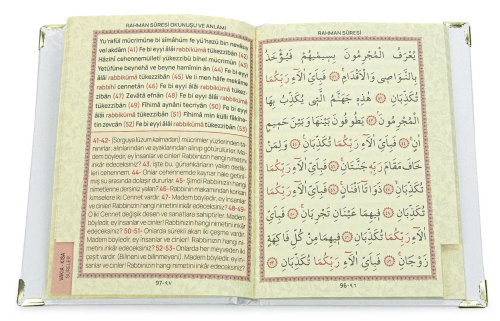 RAHMAN SÛRESİ OKUNUŞU VE ANLAMI
Yu'raful mücrimûne bi sîmâhum fe yü'hazü bin nevâsıy
vel akdâm (41) Fe bi eyyi âlâi rabbikümâ tükezzibân (42)
Hâzihî cehennemülletî yükezzibü bihel mücrimûn (43)
Yetûfûne beynehâ ve beyne hamîmin ân (44) Fe bi eyyi
âlâi rabbikümâ tükezzibân (45) Ve li men hâfe mekâme
rabbihî cennetân (46) Fe bi eyyi âlâi rabbikümâ tükezzi-
bân (47) Zevâtâ efnân (48) Fe bi eyyi âlâi rabbikümâ
tükezzibân (49) Fîhimâ aynâni tecriyân (50) Fe bi eyyi
âlâi rabbikümâ tükezzibân (51) Fîhimâ min külli fâkihe-
tin zevcân (52) Fe bi eyyi âlâi rabbikümâ tükezzibân (53)
41-42- (Sorguya lüzum kalmadan) mücrimler yüzlerinden ta-
nınırlar; alınlarından ve ayaklarından alınıp götürülürler. Ma-
dem böyledir, ey insanlar ve cinler! Rabbinizin hangi nimetini
inkâr edeceksiniz? 43- İşte bu, günahkârların yalan dedik-
leri cehennem. 44- Onlar cehennemde kaynar hale getiril-
miş su arasında dolaşır dururlar. 45- Şimdi Rabbinizin hangi
nimetlerine dersiniz yalan? 46- Rabbinin makamından korkan
kimselere iki Cennet vardır. 47- Madem böyledir, ey insanlar
ve cinler! Rabbinizin hangi nimetini inkâr edeceksiniz? 48-49-
O iki Cennet değişik desen ve sanatlara sahiptirler. Madem
böyledir, ey insanlar ve cinler! Rabbinizin hangi nimetini inkâr
edeceksiniz? 50-51- Onlarda sürekli akan iki çeşme vardır.
Madem böyledir, ey insanlar ve cinler! Rabbinizin hangi nimeti-
ni inkâr edeceksiniz? 52-53- Onlarda her meyveden iki
çeşit vardır. (Bilineni ve bilinmeyeni). Madem böyledir, ey in-
sanlar ve cinler! Rabbinizin hangi nimetini inkâr edeceksiniz?
97-٩٧
RAHMAN SÛRESİ
يُعْرَفُ الْمُجْرِمُونَ بِسِيمٰيهُمْ فَيُؤْخَذُ
بِالنَّوَاصِي وَالْاَقْدَامِ ﴿٤١﴾ فَبِاَيِّ اٰلَٓاءِ رَبِّكُمَا
تُكَذِّبَانِ ﴿٤٢﴾ هٰذِهِ جَهَنَّمُ الَّتِي يُكَذِّبُ بِهَا
الْمُجْرِمُونَ ﴿٤٣﴾ يَطُوفُونَ بَيْنَهَا وَبَيْنَ حَمِيمٍ
اٰنٍ ﴿٤٤﴾ فَبِاَيِّ اٰلَٓاءِ رَبِّكُمَا تُكَذِّبَانِ ﴿٤٥﴾ وَلِمَنْ
خَافَ مَقَامَ رَبِّهِ جَنَّتَانِ ﴿٤٦﴾ فَبِاَيِّ اٰلَٓاءِ رَبِّكُمَا
تُكَذِّبَانِ ﴿٤٧﴾ ذَوَاتَٓا اَفْنَانٍ ﴿٤٨﴾ فَبِاَيِّ اٰلَٓاءِ رَبِّكُمَا
تُكَذِّبَانِ ﴿٤٩﴾ فِيهِمَا عَيْنَانِ تَجْرِيَانِ ﴿٥٠﴾ فَبِاَيِّ
اٰلَٓاءِ رَبِّكُمَا تُكَذِّبَانِ ﴿٥١﴾ فِيهِمَا مِنْ كُلِّ فَاكِهَةٍ
زَوْجَانِ ﴿٥٢﴾ فَبِاَيِّ اٰلَٓاءِ رَبِّكُمَا تُكَذِّبَانِ ﴿٥٣﴾
96-٩٦